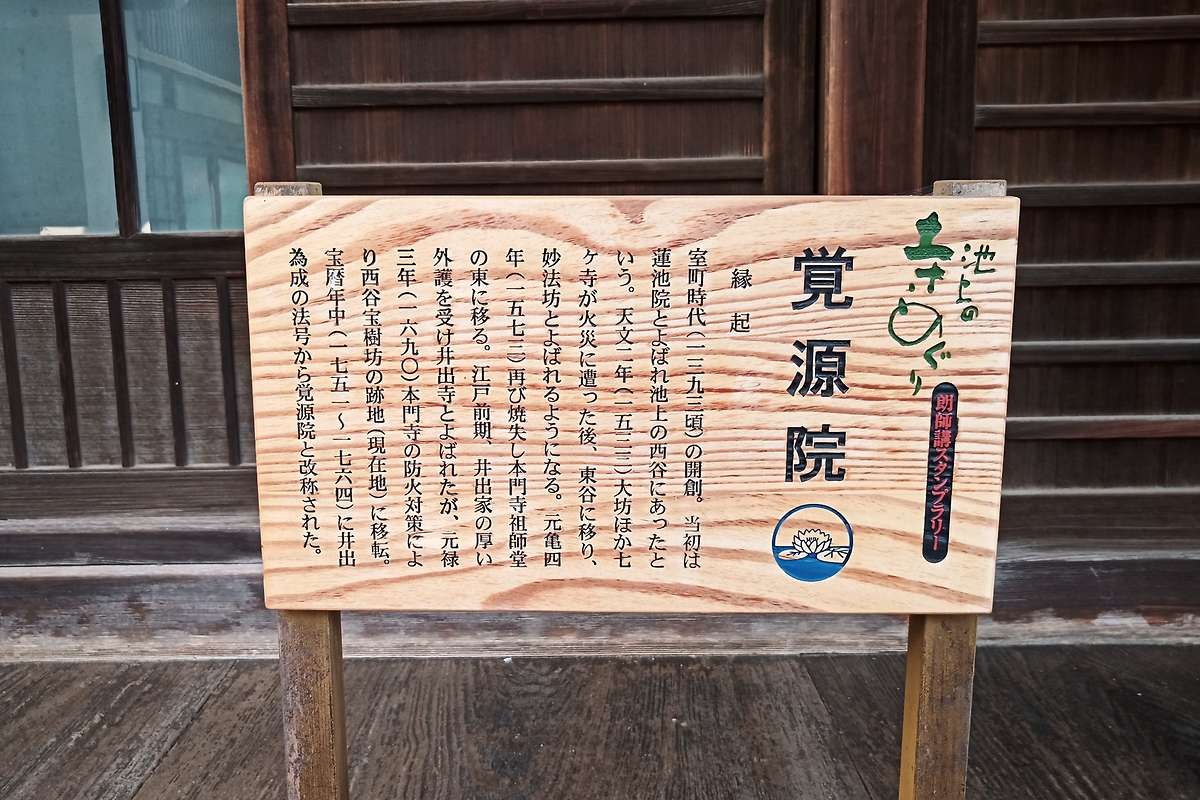 池上の
寺めぐり
朗師講スタンプラリー
覚源院
縁起
室町時代(一三九三頃)の開創。当初は
蓮池院とよばれ池上の西谷にあったと
いう。天文二年(一五三三)大坊ほか七
ヶ寺が火災に遭った後、東谷に移り、
妙法坊とよばれるようになる。元亀四
年(一五七三)再び焼失し本門寺祖師堂
の東に移る。江戸前期、井出家の厚い
外護を受け井出寺とよばれたが、元禄
三年(一六九〇)本門寺の防火対策によ
り西谷宝樹坊の跡地(現在地)に移転。
宝暦年中(一七五一〜一七六四)に井出
為成の法号から覚源院と改称された。